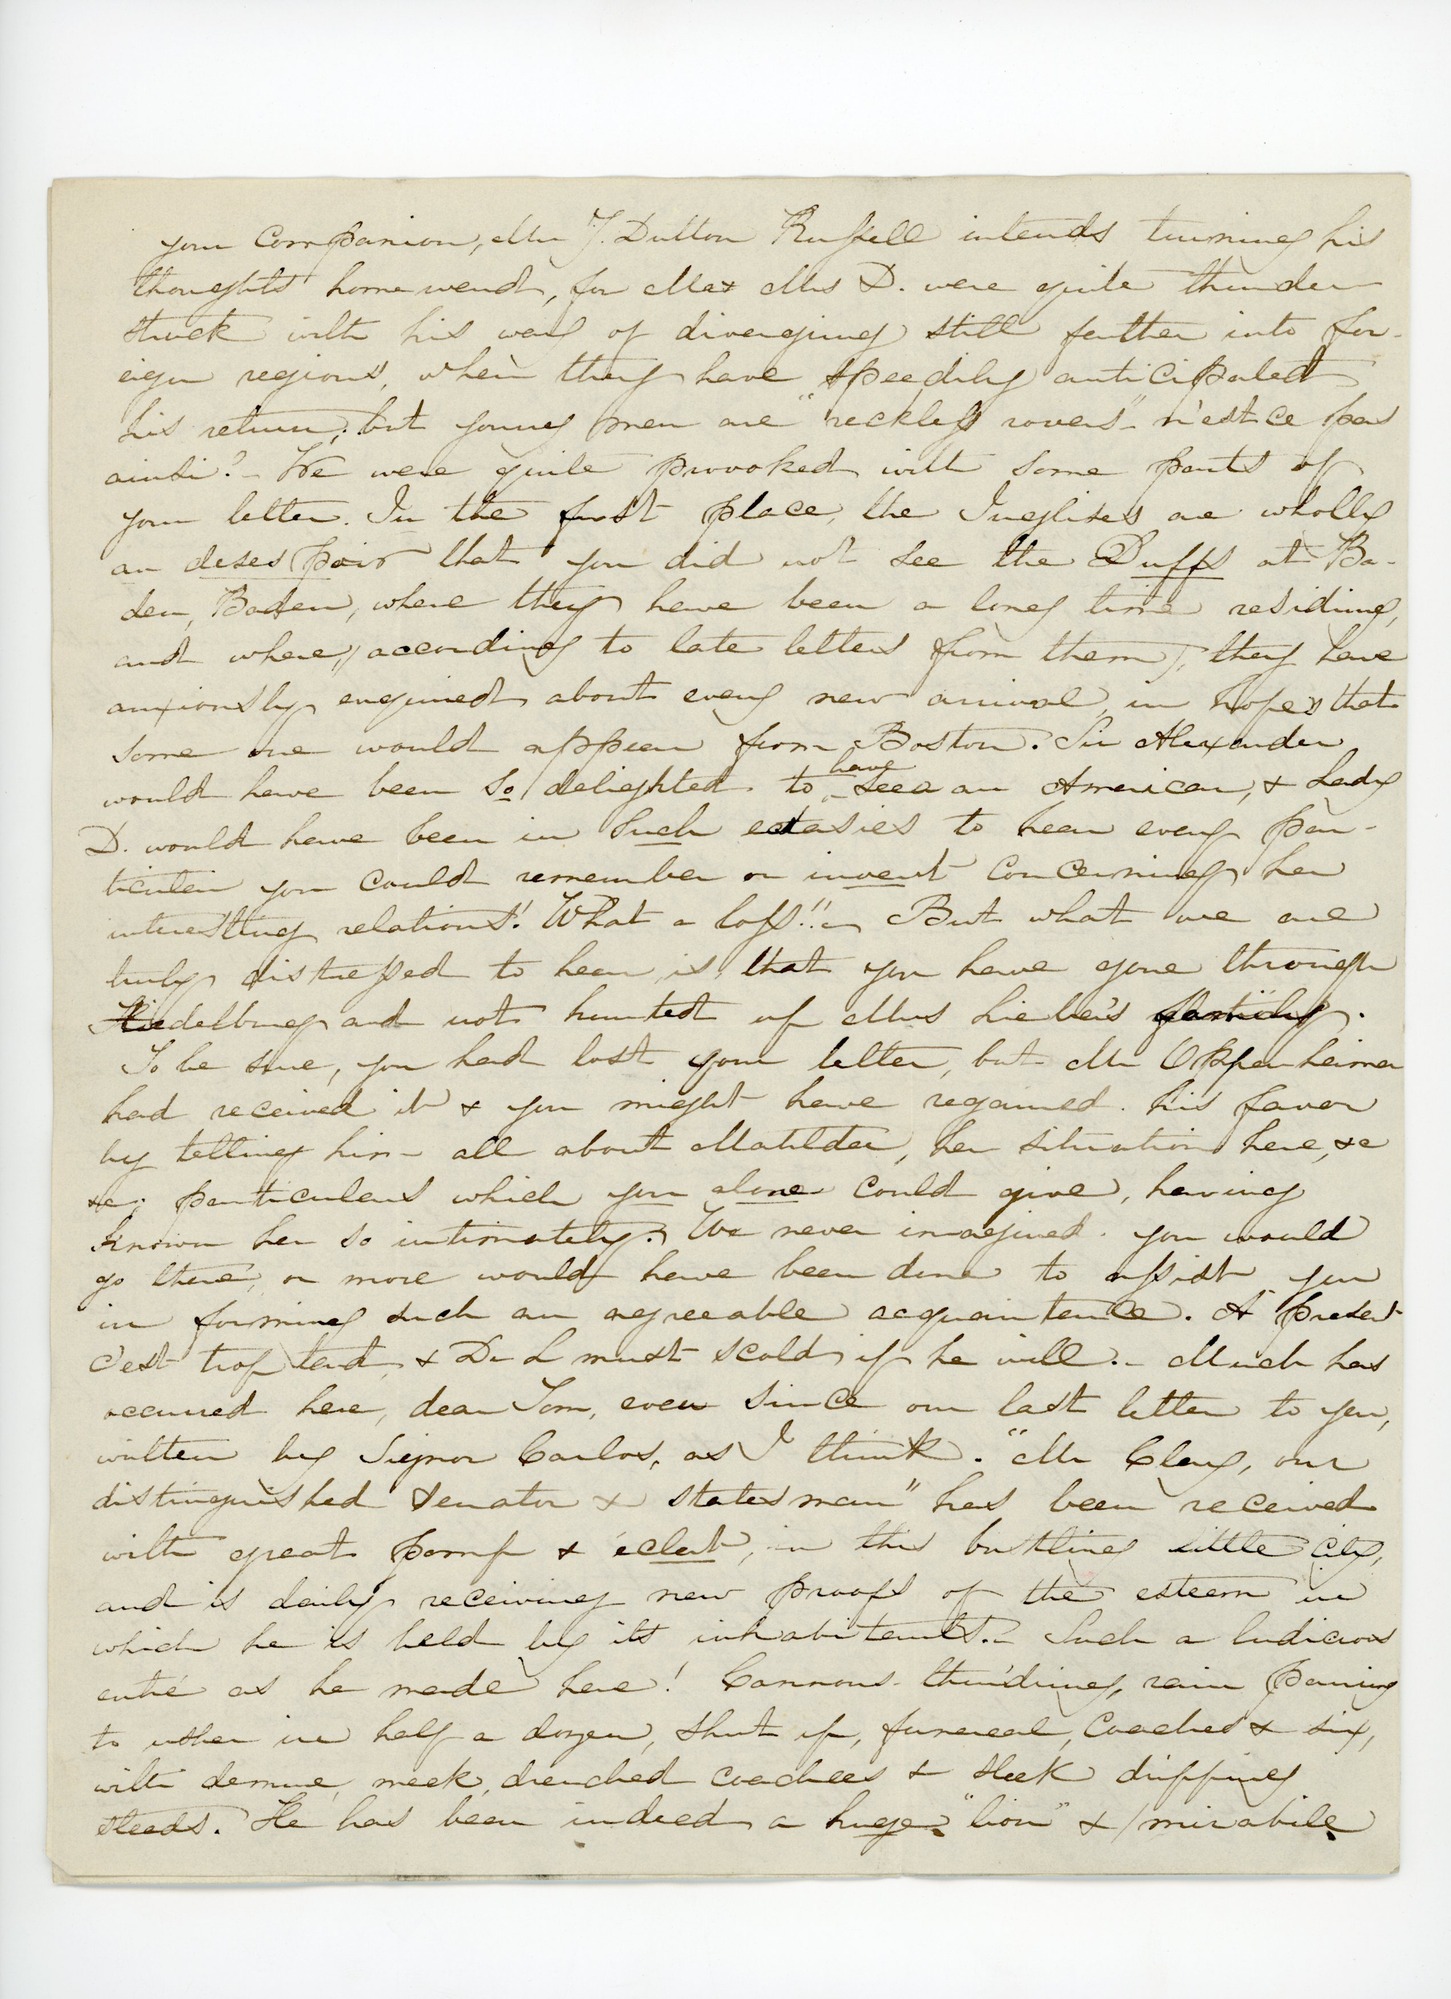 your companion, Mr J. Dutton Russell intends turning his
thoughts homeward, for Mr & Mrs D. were quite thunder
struck with his way of diverging still farther into for-
eign regions, when they have speedily anticipated
his return; but young men are "reckless rovers" n'est ce pas
ainsi? - We were quite provoked with some parts of
your letter. In the first place, the Inglises are wholly
au desespoir that you did not see the Duffs at Ba-
den, Baden, where they have been a long time residing,
and where, (according to late letters from them), they have
anxiously enquired about every new arrival, in hopes that
some one would appear from Boston. Sir Alexander
would have been so delighted to have seen an American, & Lady
D. would have been in such ectasies to hear every par-
ticular you could remember or invent concerning her
interesting relations! What a loss!! - But what we are
truly distressed to hear is, that you have gone through
Hiedelburg and not hunted up Mrs Lieber's family.
To be sure, you had lost your letter, but Mr Oppenheimer
had received it & you might have regained his favor
by telling him all about Matilda, her situation here, &c
&c; particulars which you alone could give, having
known her so intimately. We never imagined you would
go there, or more would have been done to assist you
in forming such an agreeable acquaintance. A present
c'est trop tard, & Dr L must scold if he will. - Much has
occurred here, dear Tom, even since our last letter to you,
written by Signor Carlos, as I think. "Mr Clay, our
distinguished Senator & statesman" has been received
with great pomp & éclat, in this bustling little city,
and is daily receiving new proofs of the esteem in
which he is held by its inhabitants. - Such a ludicrous
entré as he made here! Cannons thund'ring, rain pouring
to usher in half a dozen, shut up, funereal, coaches & six,
with demure, meek, drenched coachees & sleek dripping
steeds. He has been indeed a huge "lion" & (mirabile